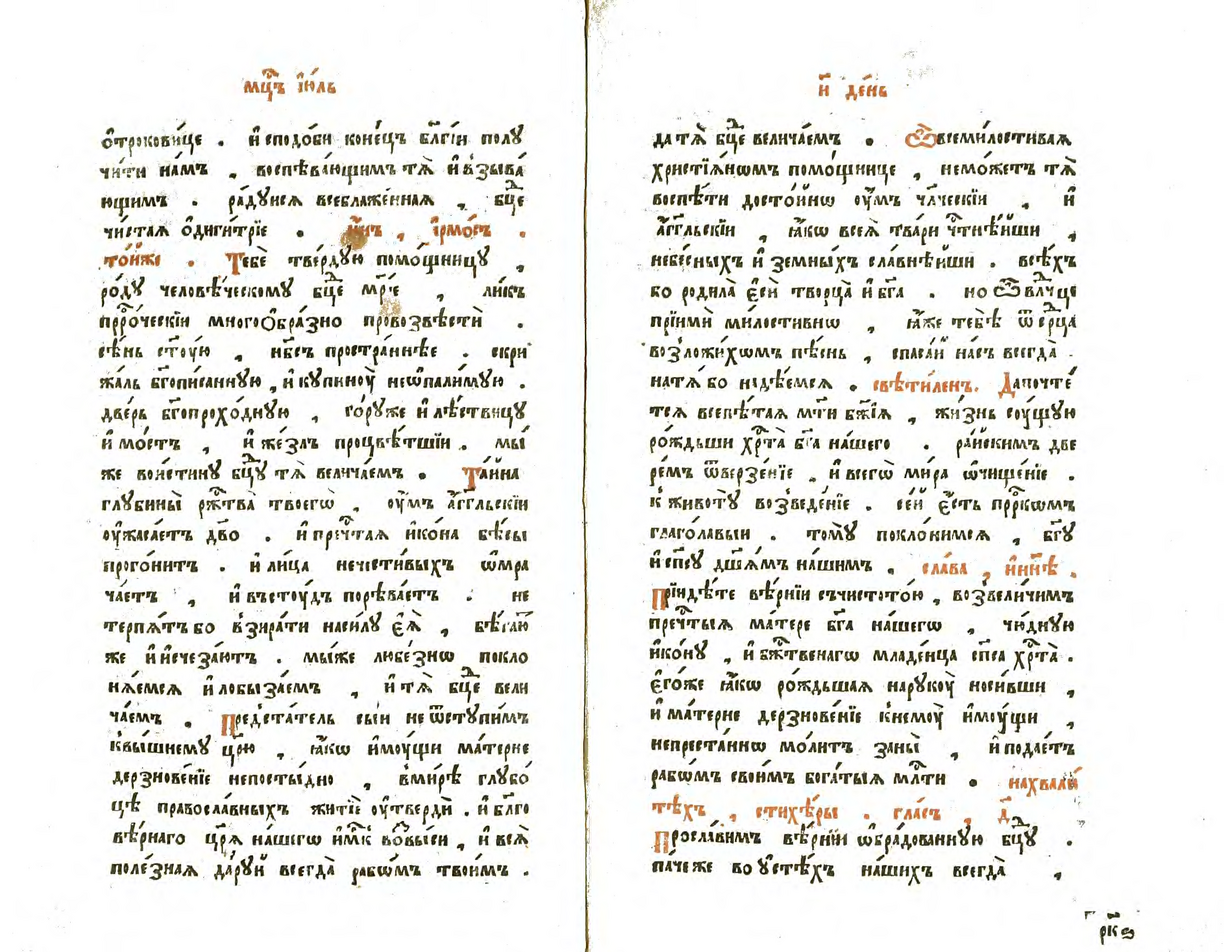 мц҃ъ і҆ю́ль
ѻ҆трокови́це . и҆ сподо́би коне́цъ бл҃гі́и полꙋ
чи́ти на́мъ , воспѣва́ющимъ тѧ̀ и҆ взыва́
ющимъ . ра́дꙋисѧ всеблаже́ннаѧ , бц҃е
чи́стаѧ ѻ҆диги́тріе . и҆́нъ , і҆рмо́съ .
то́йже . Тебѐ тве́рдꙋю помо́щницꙋ ,
ро́дꙋ человѣ́ческомꙋ бц҃е мр҃і́е , ли́къ
прⷪ҇ро́ческїи многоѻбра́зно провозвѣстѝ .
сѣ́нь ст҃ꙋ́ю , нб҃съ простра́ннѣе . скри
жа́ль бг҃опи́саннꙋю , и҆ кꙋпинꙋ̀ неѡпали́мꙋю .
две́рь бг҃опрохо́днꙋю , го́рꙋже и҆ лѣ́ствицꙋ
и҆ мо́стъ , и҆ же́злъ процвѣ́тшїи . мы́
же вои́стинꙋ бц҃ꙋ тѧ̀ велича́емъ . Та́йна
глꙋбины̀ ржⷭ҇тва̀ твоегѡ̀ , ѹ҆́мъ а҆́гг҃льскїи
ѹ҆жаса́етъ дв҃о . и҆ преч҇таѧ и҆ко́на бѣ́сы
прого́нитъ . и҆ лица̀ нечести́выхъ ѡ҆мра
ча́етъ , и҆ въстꙋ́дъ порѣва́етъ . не
терпѧ́тъ бо взира́ти наси́лꙋ є҆ѧ̀ , бѣ́гаю
же и҆ и҆счеза́ютъ . мы́же любе́знѡ покло
нѧ́емсѧ и҆ лобыза́емъ , и҆ тѧ̀ бц҃е вели
ча́емъ . Предста́тель сы́и не ѿстꙋпи́мъ
квы́шнемꙋ цр҃ю̀ , ꙗ҆́кѡ и҆мꙋ́щи ма́терне
дерзнове́нїе непосты́дно , вми́рѣ глꙋбо́
цѣ правосла́вныхъ житїѐ ѹ҆твердѝ . и҆ бл҃го
вѣ́рнаго цр҃ѧ̀ на́шегѡ и҆́мк҃ во́выси , и҆ всѧ̀
поле́знаѧ да́рꙋй всегда̀ рабѡ́мъ твои́мъ .
и҃ де́нь
да тѧ̀ бц҃е велича́емъ . Ѽ всеми́лостиваѧ
христїѧ́нѡмъ помо́щнице , немо́жетъ тѧ̀
воспѣ́ти досто́йнѡ ѹ҆́мъ чл҃ческїи , и҆
а҆́гг҃льскїи , ꙗ҆́кѡ всеѧ̀ тва́ри чⷭ҇тнѣ́йши ,
небе́сныхъ и҆ земны́хъ сла́внѣйши . всѣ́хъ
бо родила̀ є҆сѝ творца̀ и҆ бг҃а . но ѽ влⷣчце
прїимѝ ми́лостивнѡ , ꙗ҆́же тебѣ̀ ѿ се́рца
возложи́хѡмъ пѣ́снь , спаса́й на́съ всегда̀ .
на тѧ̀ бо надѣ́емсѧ . свѣти́ленъ . Да почте́
тсѧ всепѣ́таѧ мт҃и бж҃їѧ , жи́знь сꙋ́щꙋю
ро́ждьши хрⷭ҇та̀ бг҃а на́шего . ра́йскимъ две
ре́мъ ѿверзе́нїе , и҆ всегѡ̀ ми́ра ѡ҆чище́нїе .
к животꙋ̀ возведе́нїе . се́й є҆́сть прⷪ҇ркѡмъ
глаго́лавыи . томꙋ̀ поклони́мсѧ , бг҃ꙋ
и҆ сп҃сꙋ дш҃а́мъ на́шимъ . сла́ва , и҆ ны́нѣ .
Прїиди́те вѣ́рнїи съчистото́ю , возвели́чимъ
преч҇тыѧ ма́тере бг҃а на́шегѡ , чю́днꙋю
и҆ко́нꙋ , и҆ бжⷭ҇твенагѡ младе́нца сп҃са хрⷭ҇та̀ .
є҆го́же ꙗ҆́кѡ ро́ждьшаѧ нарꙋкꙋ̀ носи́вши ,
и҆ ма́терне дерзнове́нїе к немꙋ̀ и҆мꙋ́щи ,
непреста́ннѡ мо́литъ за ны̀ , и҆ подае́тъ
рабѡ́мъ свои́мъ бога́тыѧ млⷭ҇ти . на хвали́
техъ , стихѣ́ры . гла́съ , д҃ .
Просла́вимъ вѣ́рнїи ѡ҆бра́дованнꙋю бц҃ꙋ .
па́че же во ѹ҆стѣ́хъ на́шихъ всегда̀ ,